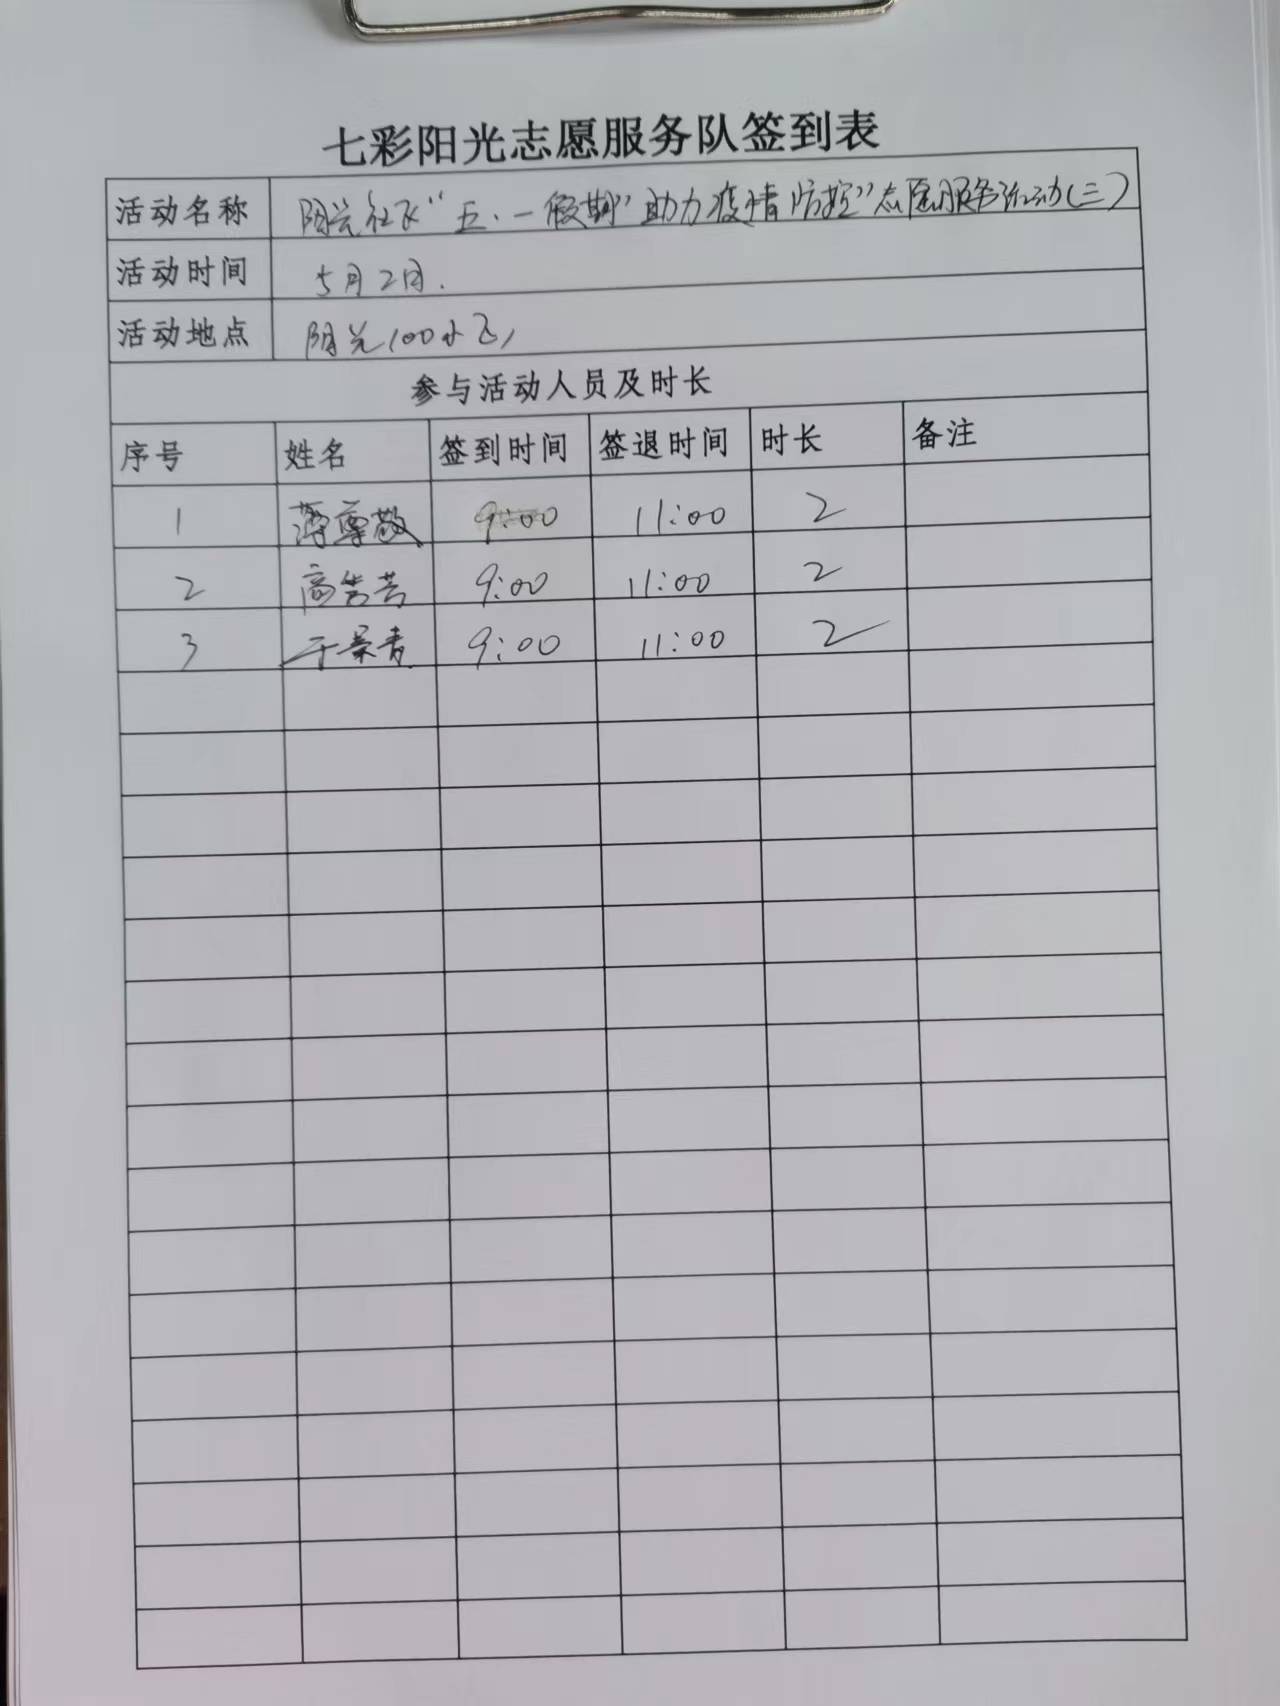 七彩阳光志愿服务队签到表
活动名称 阳光社区“五·一假期”助力疫情防控”志愿服务活动(三)
活动时间 5月2日.
活动地点 阳光100小区
参与活动人员及时长
序号 姓名 签到时间 签退时间 时长 备注
1 薄尊敬 9:00 11:00 2
2 高 9:00 11:00 2
3 于景青 9:00 11:00 2